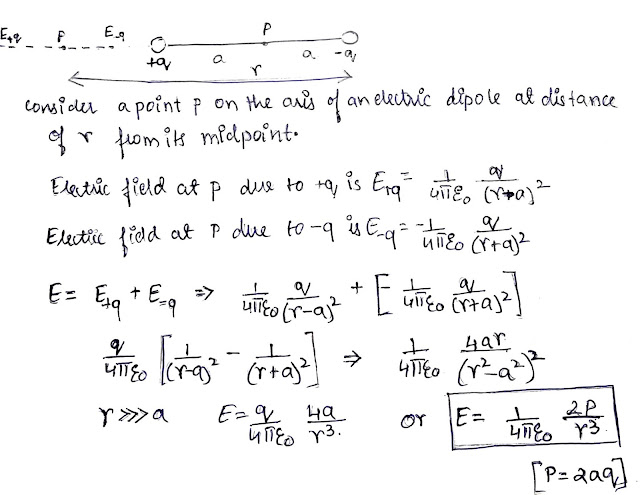 E+q P E-q +q a P a -q
r
consider a point P on the axis of an electric dipole at distance
of r from its midpoint.
Electric field at P due to +q is E+q = 1/4πε₀ q/(r-a)²
Electric field at P due to -q is E-q = -1/4πε₀ q/(r+a)²
E = E+q + E-q ⇒ 1/4πε₀ q/(r-a)² + [- 1/4πε₀ q/(r+a)²]
q/4πε₀ [1/(r-a)² - 1/(r+a)²] ⇒ 1/4πε₀ 4ar/(r²-a²)²
r >>> a E = q/4πε₀ 4a/r³. or E = 1/4πε₀ 2P/r³
[P = 2aq]